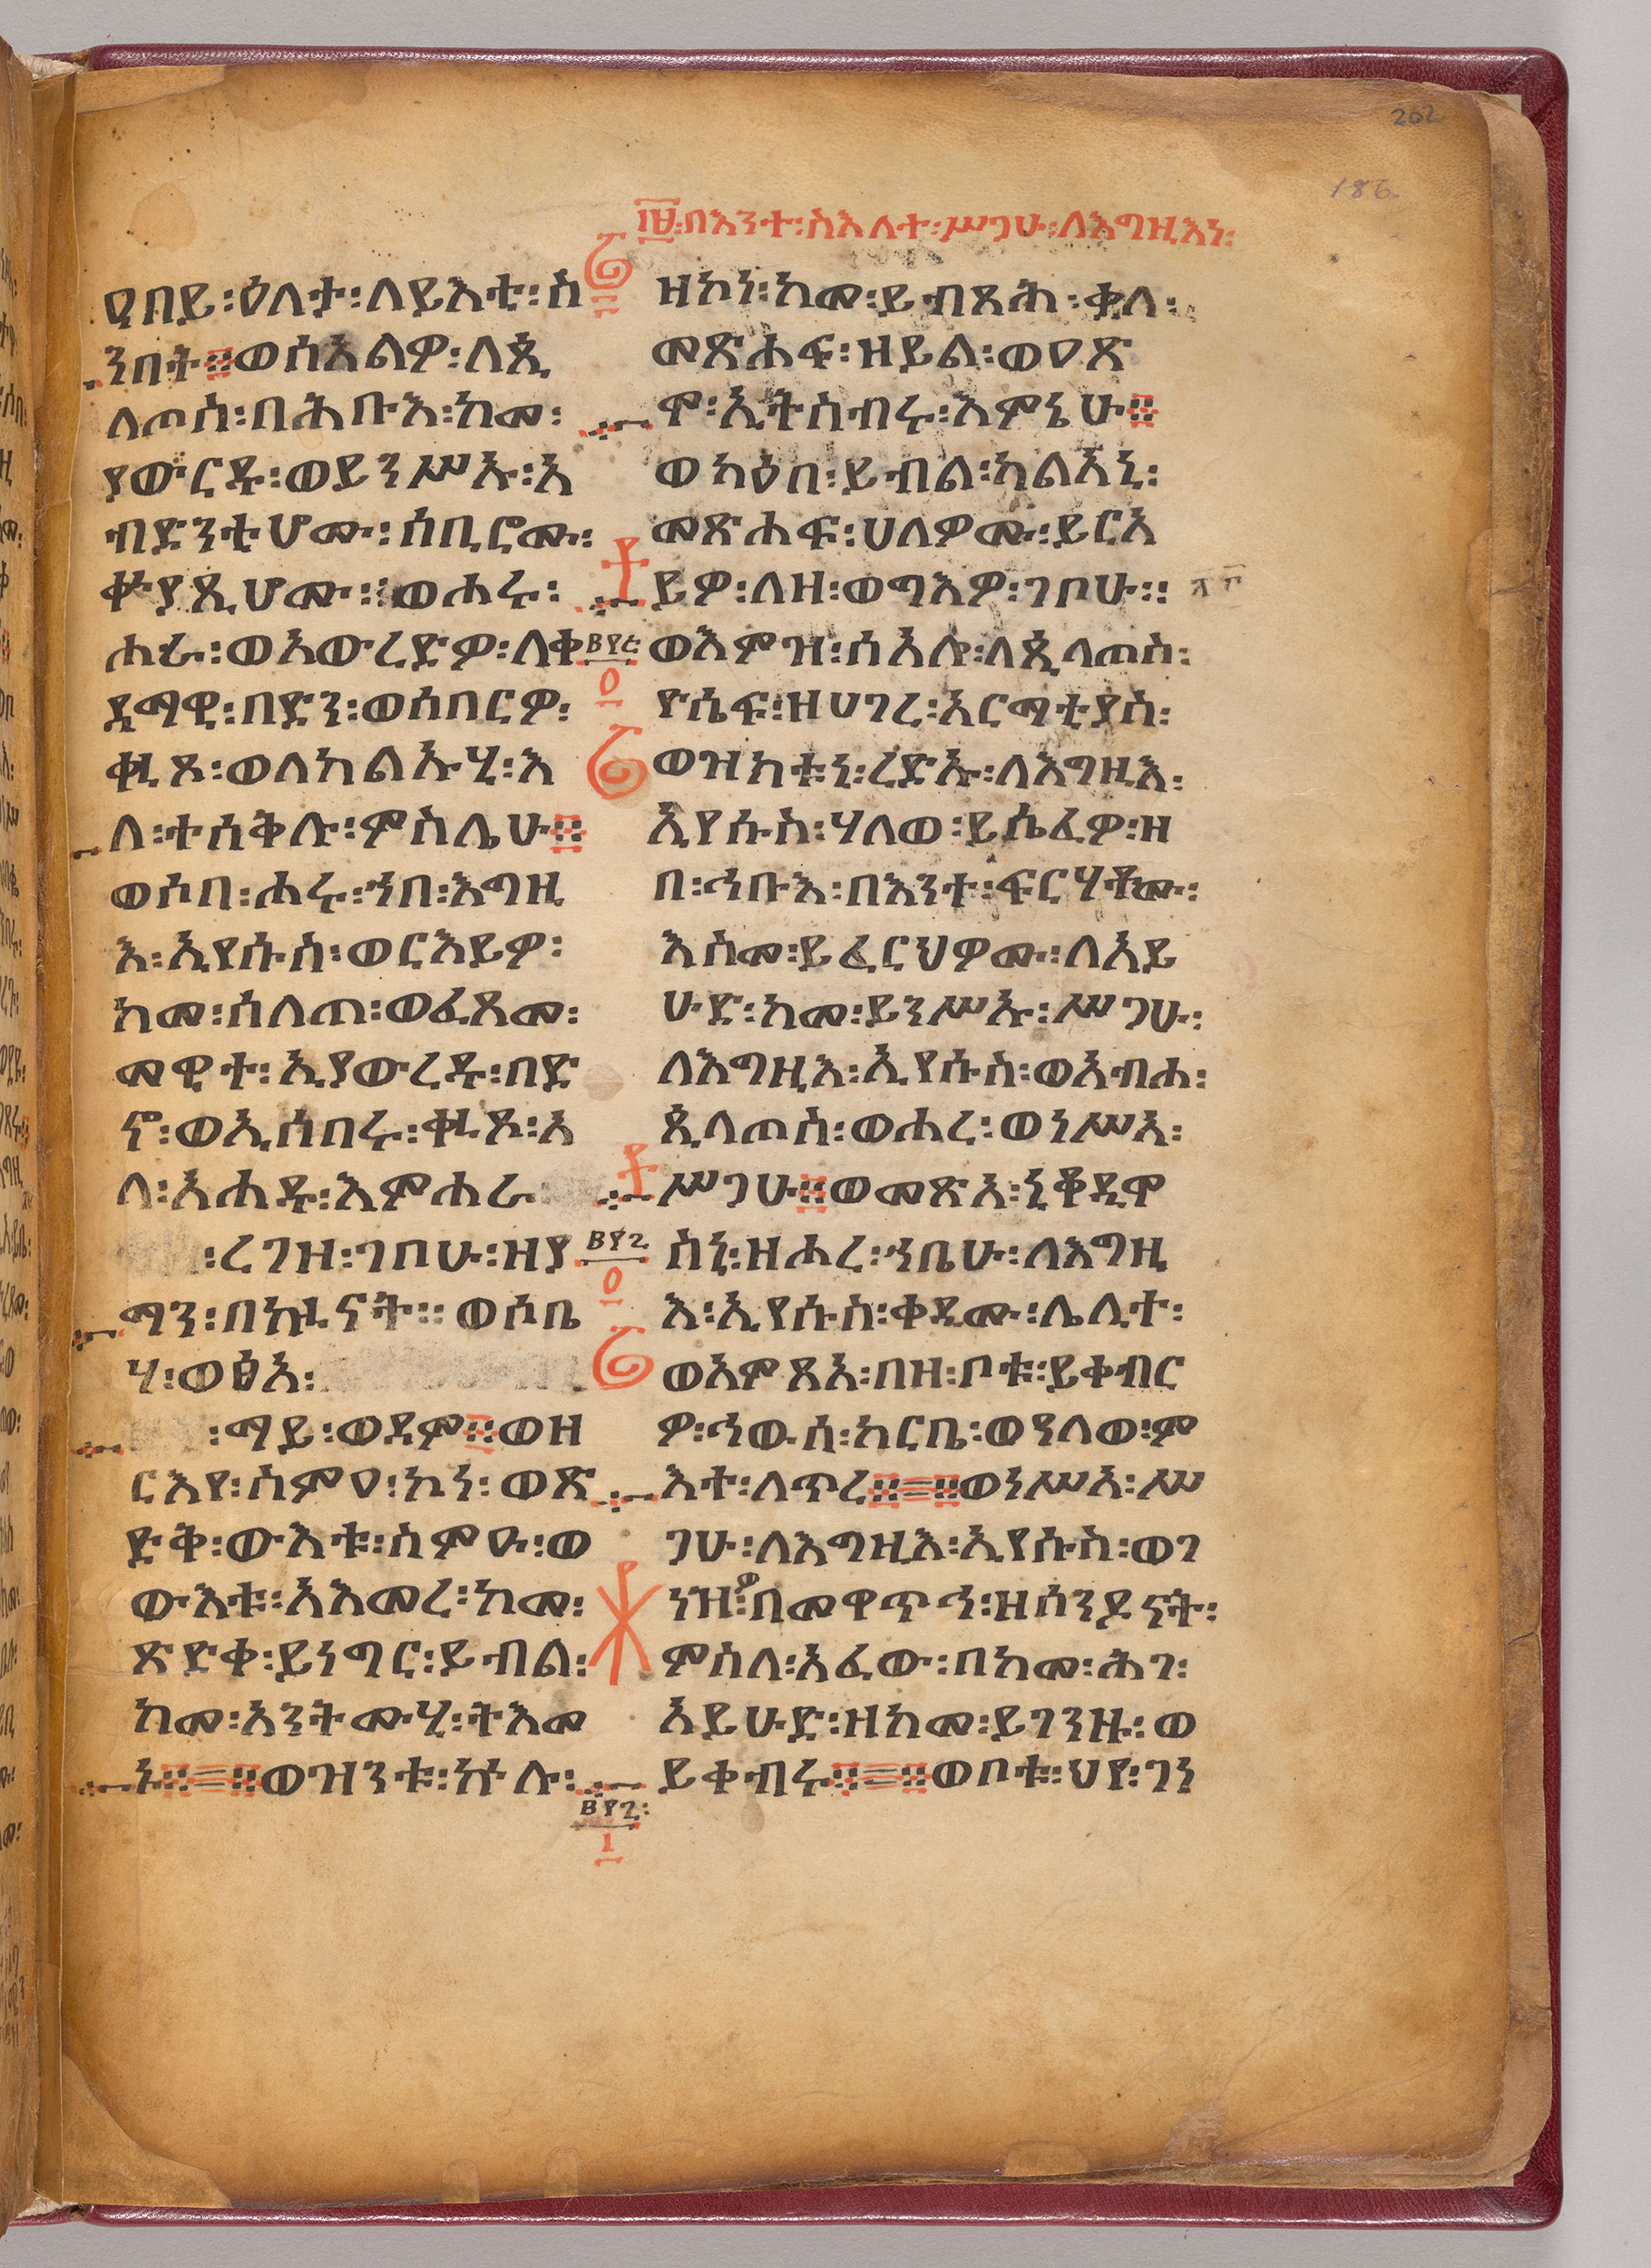 202
186
፲፰፡በእንተ፡ስእለተ፡ሥጋሁ፡ለእግዚእነ፡
ዐቢይ፡ዕለታ፡ለይእቲ፡ሰ
ንበት፨ወሰአልዎ፡ለጲ
ላጦስ፡በሕቡእ፡ከመ፡
ያውርዱ፡ወይንሥኡ፡አ
ብድንቲሆሙ፡ሰቢሮሙ፡
ቍያጺሆሙ፡፡ወሐሩ፡
ሐራ፡ወአውረድዎ፡ለቀ
ዳማዊ፡በድን፡ወሰበርዎ፡
ቍዪጾ፡ወለካልኡሂ፡እ
ለ፡ተሰቅሉ፡ምስሌሁ፨
ወሶበ፡ሐሩ፡ኀበ፡እግዚ
እ፡ኢየሱስ፡ወርእይዎ፡
ከመ፡ሰለጠ፡ወፈጸመ፡
መዊተ፡ኢያውረዱ፡በድ
ኖ፡ወኢሰበሩ፡ቍያጾ፡አ
ላ፡አሐዱ፡እምሐራ
፡ረገዞ፡ገቦሁ፡ዘየ
ማን፡በኲናት፡፡ወሶቤ
ሃ፡ወፅአ፡
፡ማይ፡ወደም፨ወዘ
ርእየ፡ስምዐ፡ኮነ፡ወጽ
ድቅ፡ውእቱ፡ስምዑ፡ወ
ውእቱ፡አእመረ፡ከመ፡
ጽድቀ፡ይነግር፡ይብል፡
ከመ፡አንትሙሂ፡ትእመ
ኑ፨=፨ወዝንቱ፡ኵሉ፡
ዘኮነ፡ከመ፡ይብጻሕ፡ቃለ፡
መጽሐፍ፡ዘይል፡ወዐጽ
ሞ፡ኢትስብሩ፡እምኔሁ፨
ወካዕበ፡ይብል፡ካልእኒ፡
መጽሐፍ፡ሀለዎሙ፡ይርአ
ይዎ፡ለዘ፡ወግእዎ፡ገቦሁ፡፡
ወእምዝ፡ሰአሎ፡ለጲላጦስ፡
ዮሴፍ፡ዘሀገረ፡አርማቲያስ፡
ወዝክቱኒ፡ረድኡ፡ለእግዚእ፡
ኢየሱስ፡ሃለወ፡ይሴፈዎ፡ዘ
በ፡ኅቡእ፡በእንተ፡ፍርሃቶሙ፡
እስመ፡ይፈርህዎሙ፡ለአይ
ሁድ፡ከመ፡ይንሥኡ፡ሥጋሁ፡
ለእግዚእ፡ኢየሱስ፡ወአብሐ፡
ጲላጦስ፡ወሐረ፡ወነሥአ፡
ሥጋሁ፨ወመጽአ፡ኒቆዲሞ
ስኒ፡ዘሐረ፡ኀቤሁ፡ለእግዚ
እ፡ኢየሱስ፡ቀዲሙ፡ሌሊተ፡
ወአምጽአ፡በዘ፡ቦቱ፡ይቀብር
ዎ፡ኀውሰ፡ከርቤ፡ወዓለወ፡ም
እተ፡ለጥረ፨=፨ወነሥአ፡ሥ
ጋሁ፡ለእግዚእ፡ኢየሱስ፡ወገ
ነዞ፡በመዋጥኅ፡ዘሰንዶናት፡
ምስለ፡አፈው፡በከመ፡ሕገ፡
አይሁድ፡ዘከመ፡ይገንዙ፡ወ
ይቀብሩ፨=፨ወቦቱ፡ህየ፡ገነ